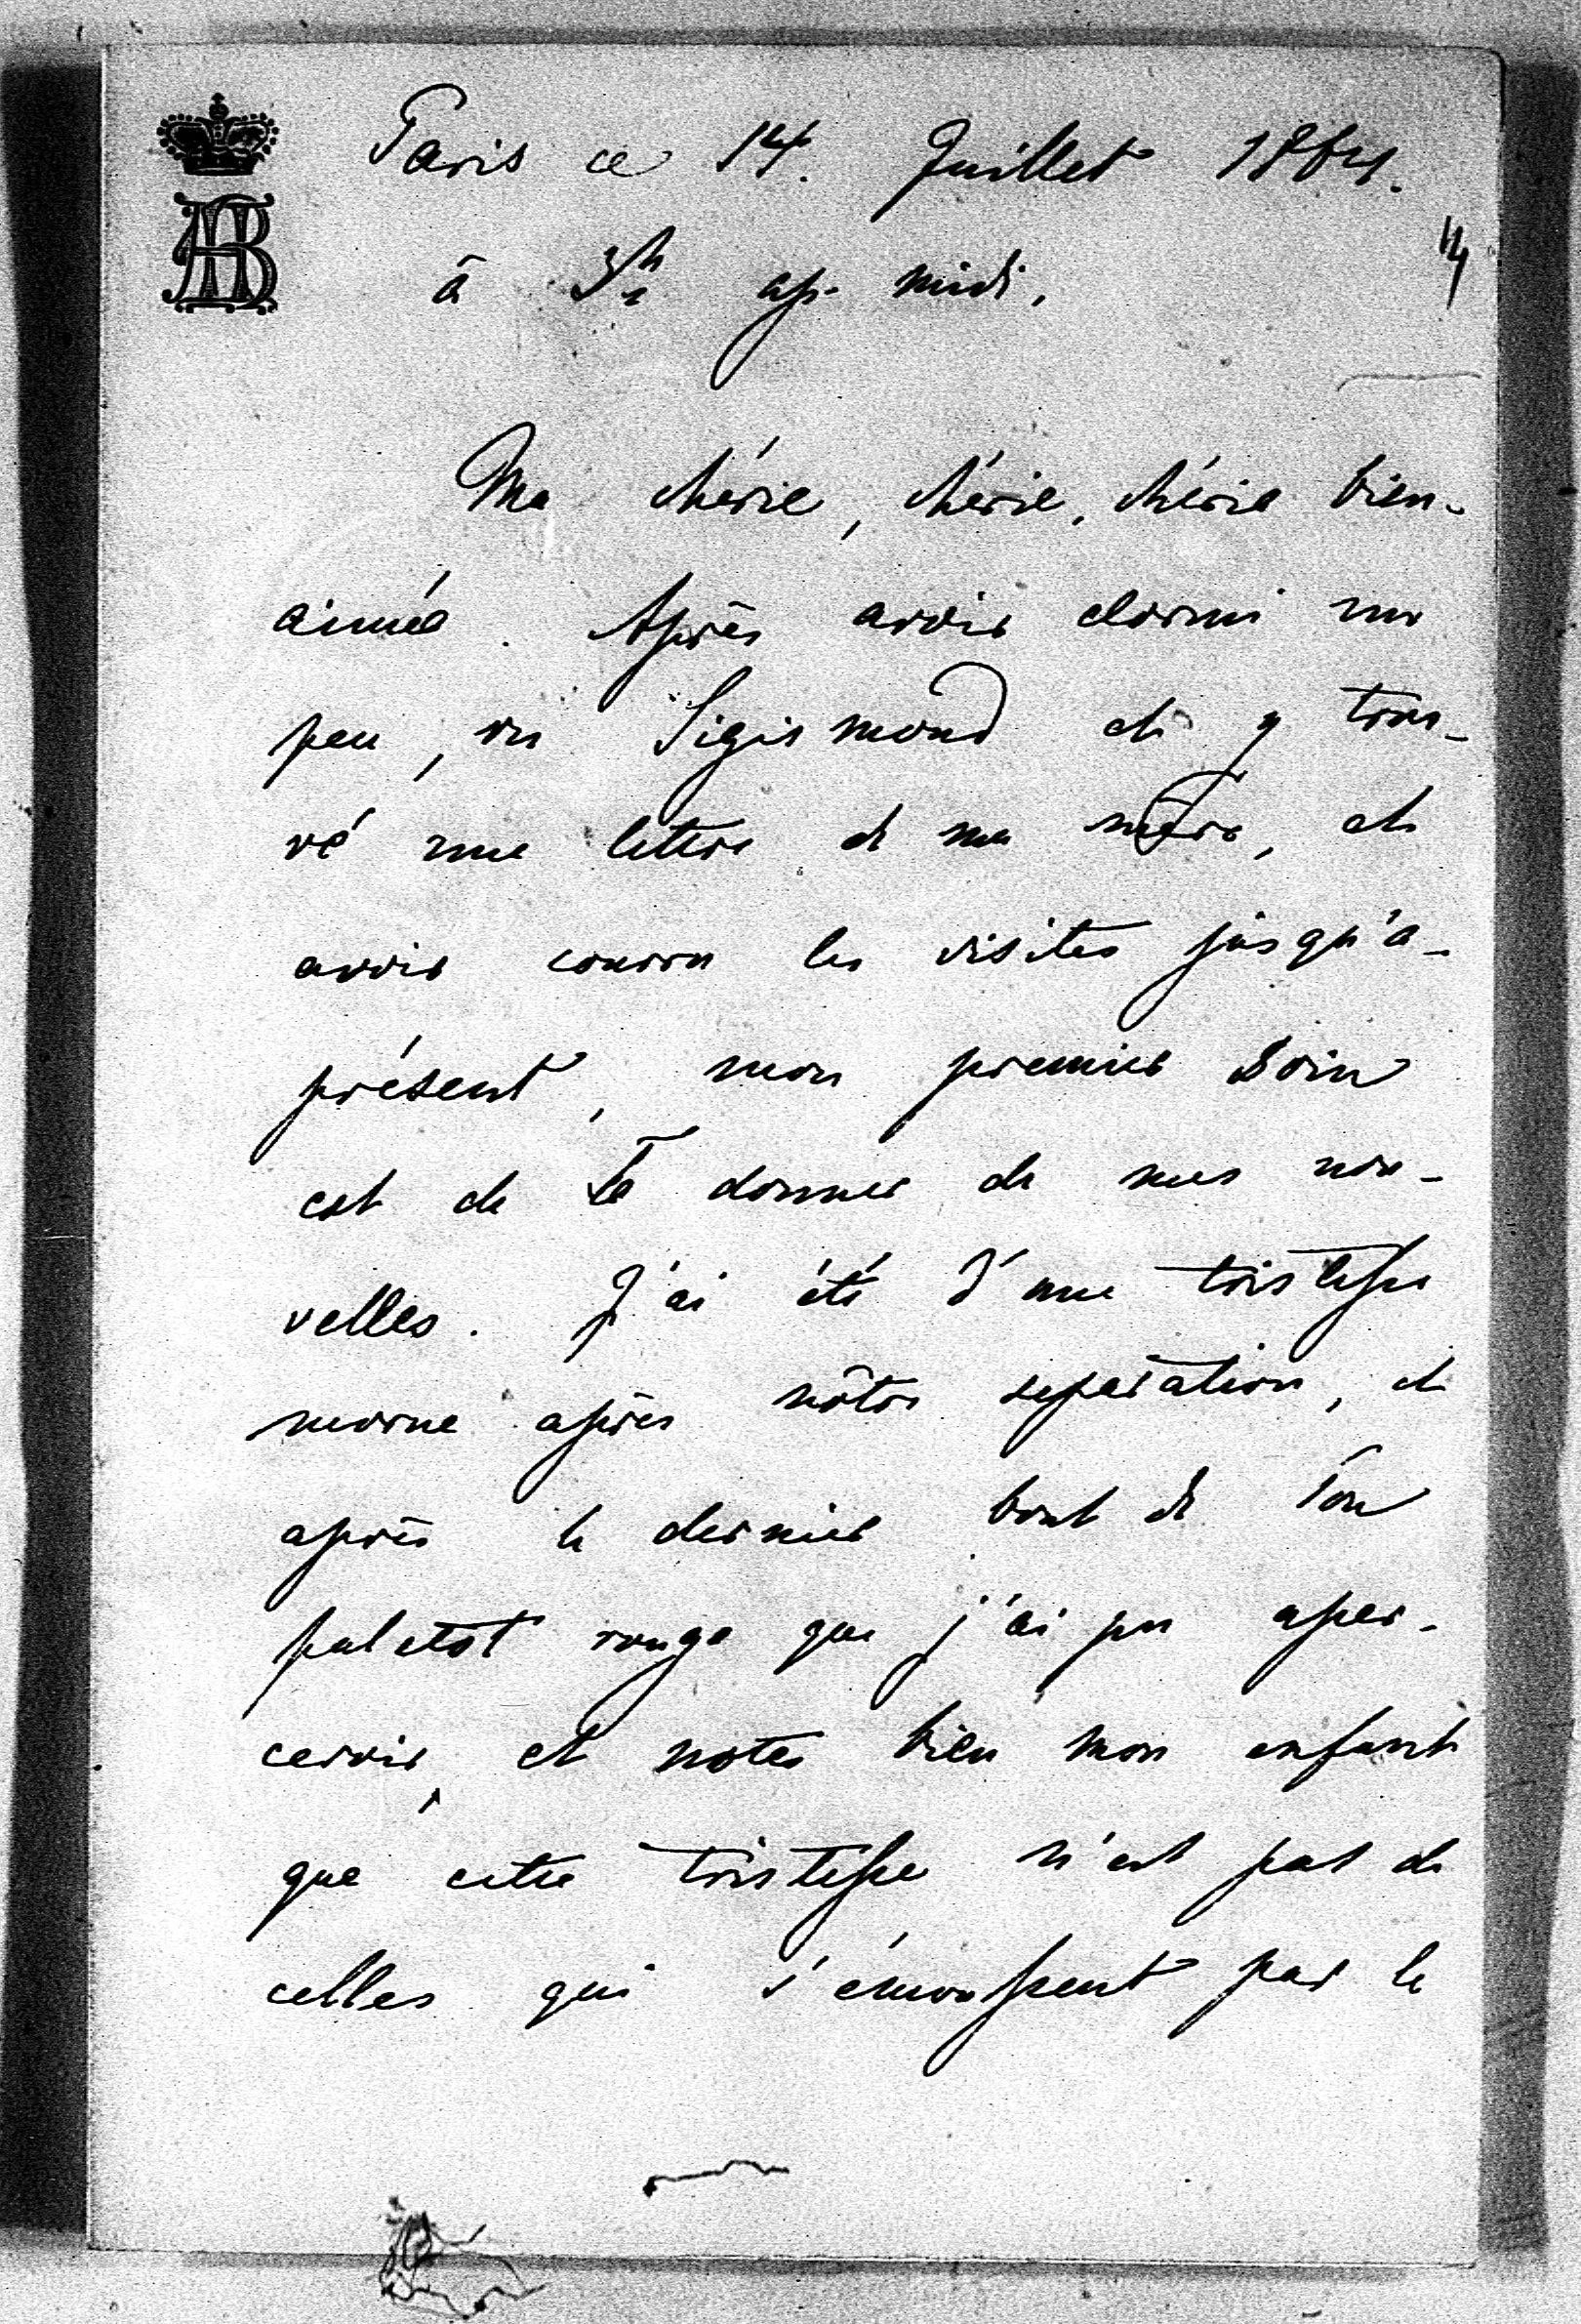 AB
Paris ce 14. Juillet 1864.
à 3h ap. midi.
Ma chérie, chérie, chérie bien-
aimée. Après avoir dormi un
peu, vu Sigismond et y trou-
vé une lettre de ma mère, et
avoir couru les visites jusqu'à-
présent, mon premier soin
est de Te donner de mes nou-
velles. J'ai été d'une tristesse
morne après nôtre separation, et
après le dernier bout de Ton
paletot rouge que j'ai pu aper-
cevoir, et notes bien mon enfant
que cette tristesse n'est pas de
celles qui s'émoussent par le